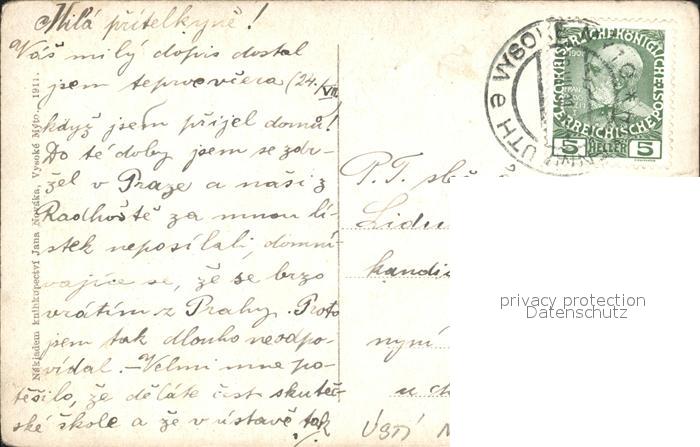 Milá přítelkyně!
Váš milý dopis dostal
jsem teprve včera (24./VII
když jsem přijel domů!
Do té doby jsem se zdr-
žel v Praze a naši z
Radhoště za mnou lí-
stek neposílali, domní-
vajíce se, že se brzo
vrátím z Prahy. Proto
jsem tak dlouho neodpo-
vídal. - Velmi mne po-
těšilo, že děláte část skuteč-
ské škole a že v ústavě tak
Nákladem knihkupectví Jana Nováka, Vysoké Mýto. 1911.
P.T. sl
Lidu
kandi
nyní
u ch
ÚSTÍ N
5 HELLER 5
privacy protection
Datenschutz